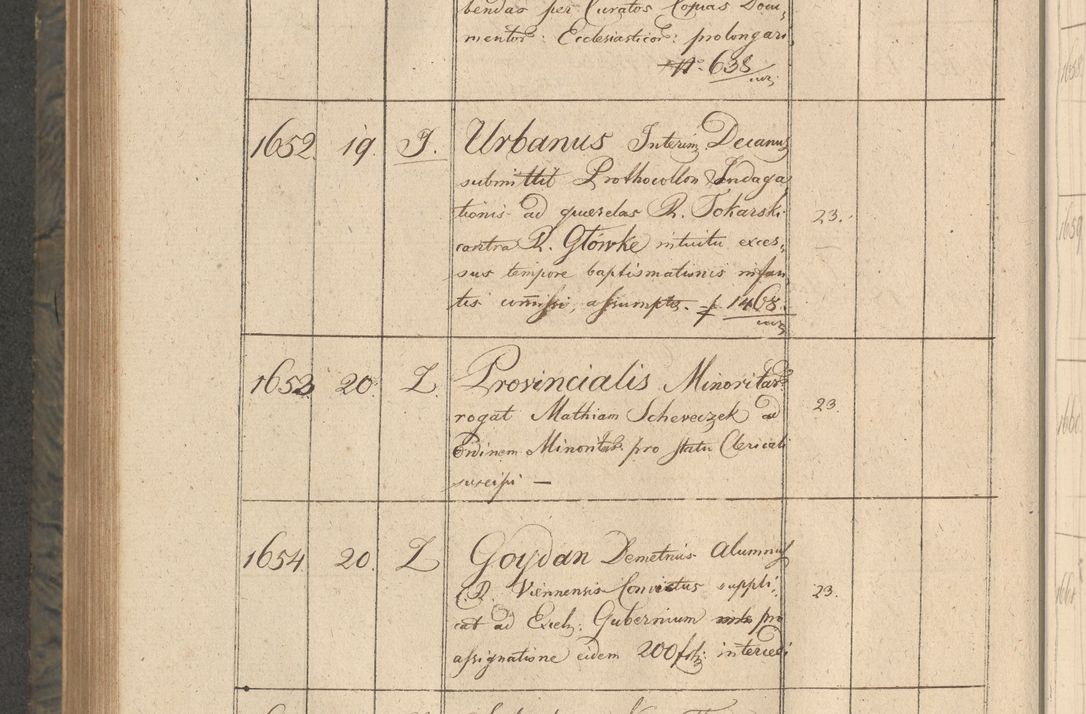 bendas per Curatos Copias Docu,
mentor: Ecclesiasticor: prolongari.
N. 638
1652. 19. J. Urbanus Interim. Decanus
submittit Prothocollon Indaga
tionis ad querelas R. Tokarski 23.
contra R. Główke intuitu exces,
sus tempore baptismationis infan
tis comissi, assumptu. f 1468.
1653 20. L. Provincialis Minoritar
rogat Mathiam Scheveczek ad 23.
Ordinem Minoritar. pro statu Clericali
suscipi —
1654 20. L Goydan Demetrius Alumnus
C. R. Viennensis Convictus suppli, 23.
cat ad Excels. Gubernium pro
assignatione eidem 200 fl intercedi